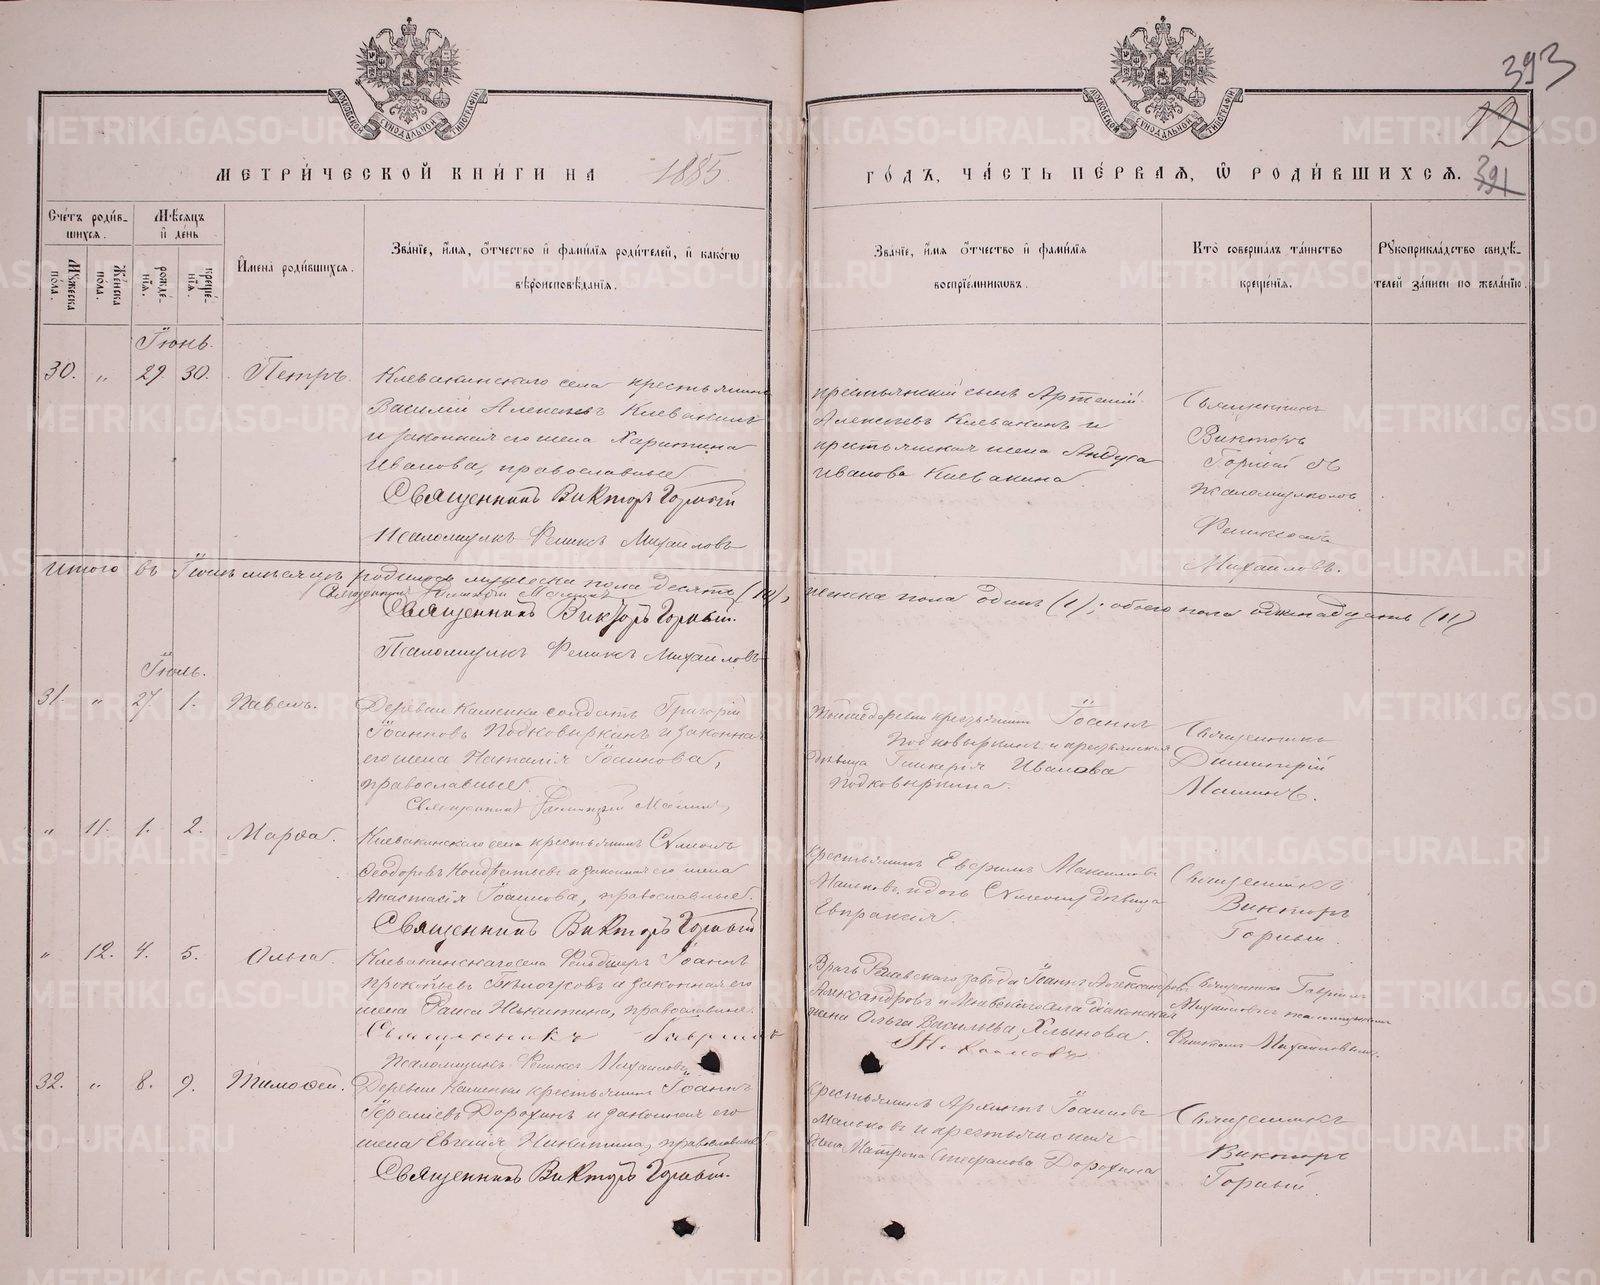 393
12
391
МОСКОВСКОЙ СУНОДАЛЬНОЙ ТИПОГРАФІИ
МОСКОВСКОЙ СУНОДАЛЬНОЙ ТИПОГРАФІИ
МЕТРИ́ЧЕСКОЙ КНИ́ГИ НА 1885 ГО́ДЪ, ЧА́СТЬ ПЕ́РВАЯ, Ѡ РОДИ́ВШИХСЯ.
Сче́тъ роди́в-
шихся.
Мꙋжеска по́ла.
Же́нска пола.
Мѣ́сяцъ и де́нь
рожде́-нїя.
креще́-нїя.
И҆мена̀ роди́вшихся.
Зва́нїе, и҆́мя, ѻ҆́тчество и҆ фами́лїя роди́телей, и҆ како́гѡ
вѣроисповѣ́данїя.
Зва́нїе, и҆́мя ѻ҆́тчество и҆ фами́лїя
воспрїе́мникѡвъ.
Кто̀ соверша́лъ та́инство
креще́нїя.
Рꙋкоприкла́дство свидѣ́-
телей за́писи по жела́нїю.
Іюнь.
30. „ 29 30. Петръ.
Клевакинскаго села крестьянинъ
Василій Алексѣевъ Клевакинъ
и законная его жена Харитина
Иванова, православные
Священникъ Викторъ Горный
Псаломщикъ Феликсъ Михайловъ
крестьянскій сынъ Артемій
Алексѣевъ Клевакинъ и
крестьянская жена
Иванова Клевакина.
Священникъ
Викторъ
Горный съ
псаломщикомъ
Феликсомъ
Михайловъ.
Итого въ Іюнѣ мѣсяцѣ родилось мужеска пола десять (10), женска пола одинъ (1); обоего пола одиннадцать (11)
Священникъ Димитрій Машинъ
Священникъ Викторъ Горный.
Псаломщикъ Феликсъ Михайловъ
Іюль.
31. „ 27. 1. Павелъ.
Деревни Каменки солдатъ Григорій
Іоанновъ Подковыркинъ и законная
его жена Наталія Іоаннова,
православные.
Священникъ Димитрій Машинъ
Тойже деревни крестьянинъ Іоаннъ
Подковыркинъ и крестьянская
дѣвица Гликерія Иванова
Подковыркина.
Священникъ
Димитрій
Машинъ.
„ 11. 1. 2. Марѳа.
Клевакинскаго села крестьянинъ Симеонъ
Ѳеодоровъ Кондратьевъ и законная его жена
Анастасія Іоаннова, православные.
Священникъ Викторъ Горный
крестьянинъ Максимовъ
Маньковъ и дочь дѣвица
Евпраксія.
Священникъ
Викторъ
Горный.
„ 12. 4. 5. Ольга.
Клевакинскаго села Фельдшеръ Іоаннъ
Прокопьевъ и законная его
жена Раиса Никитина, православные.
Священникъ Гавріилъ
Михайловъ
Псаломщикъ Феликсъ Михайловъ
Врачъ завода Іоаннъ Александровъ
Александровъ и села діаконская
жена Ольга Васильева Хлынова.
Священникъ Гавріилъ
Михайловъ псаломщикомъ
Феликсомъ Михайловымъ.
32. „ 8. 9. Тимоѳей.
Деревни Каменки крестьянинъ Іоаннъ
Іереміевъ Дорохинъ и законная его
жена Евгенія Никитина, православные
Священникъ Викторъ Горный.
крестьянинъ Архипъ Іоанновъ
Маньковъ и крестьянская
жена Матрона Стефанова Дорохина
Священникъ
Викторъ
Горный.
METRIKI.GASO-URAL.RU